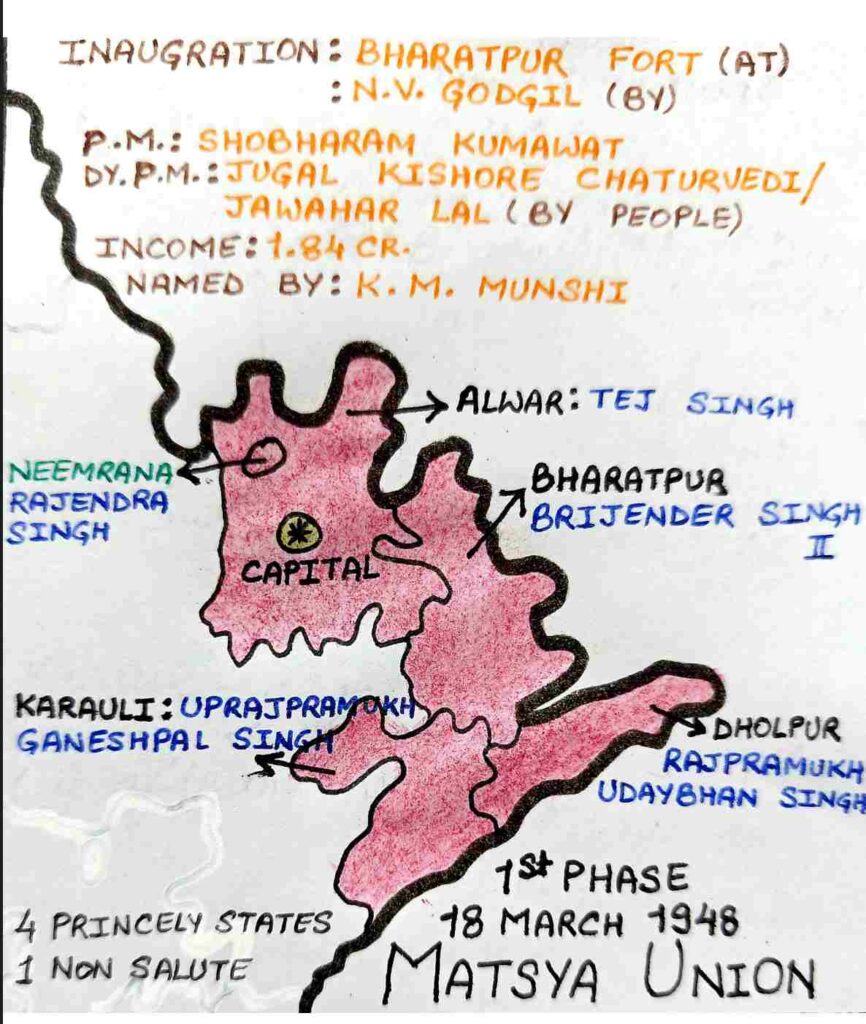 INAUGRATION: BHARATPUR FORT (AT)
: N.V. GODGIL (BY)
P.M.: SHOBHARAM KUMAWAT
DY. P.M.: JUGAL KISHORE CHATURVEDI/
JAWAHAR LAL (BY PEOPLE)
INCOME: 1.84 CR.
NAMED BY: K. M. MUNSHI
ALWAR: TEJ SINGH
NEEMRANA
RAJENDRA
SINGH
BHARATPUR
BRIJENDER SINGH
II
CAPITAL
KARAULI: UPRAJPRAMUKH
GANESHPAL SINGH
DHOLPUR
RAJPRAMUKH
UDAYBHAN SINGH
1st PHASE
18 MARCH 1948
MATSYA UNION
4 PRINCELY STATES
1 NON SALUTE